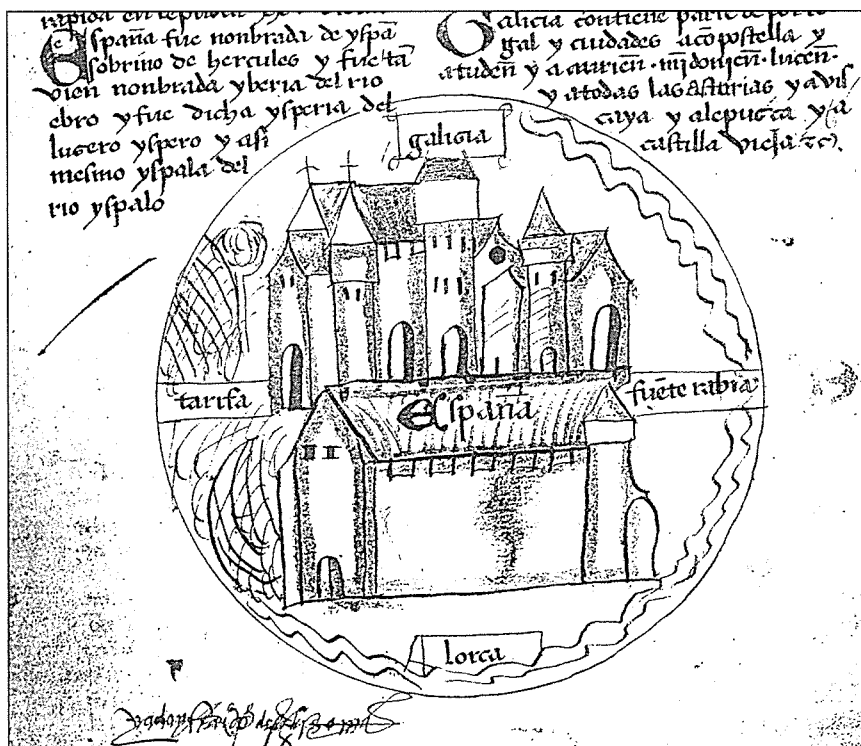 España fue nonbrada de yspã
sobrino de hercules y fue tã
vien nonbrada yberia del rio
ebro y fue dicha ysperia del
lucero yspero y asi
mesmo yspala del
rio yspalo
Galicia contiene parte de porto
gal y ciudades acõpostella y
atudeñ y a aurieñ · mĩdonieñ · luceñ ·
y atodas las asturias y a vis
caya y alepuzca y a
castilla vieja
galicia
tarifa
España
fuẽte rabia
lorca